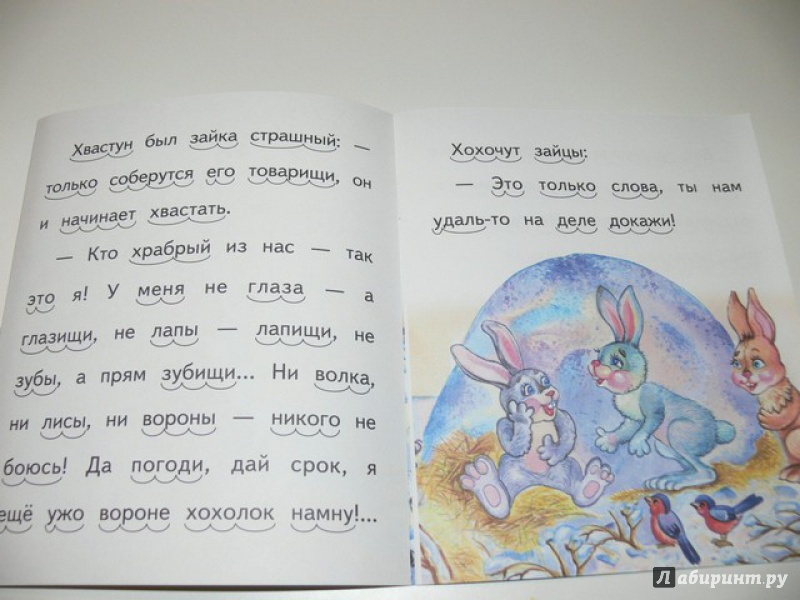 Хвастун был зайка страшный: —
только соберутся его товарищи, он
и начинает хвастать.
— Кто храбрый из нас — так
это я! У меня не глаза — а
глазищи, не лапы — лапищи, не
зубы, а прям зубищи... Ни волка,
ни лисы, ни вороны — никого не
боюсь! Да погоди, дай срок, я
ещё ужо вороне хохолок намну!...
Хохочут зайцы:
— Это только слова, ты нам
удаль-то на деле докажи!
Лабиринт.ру